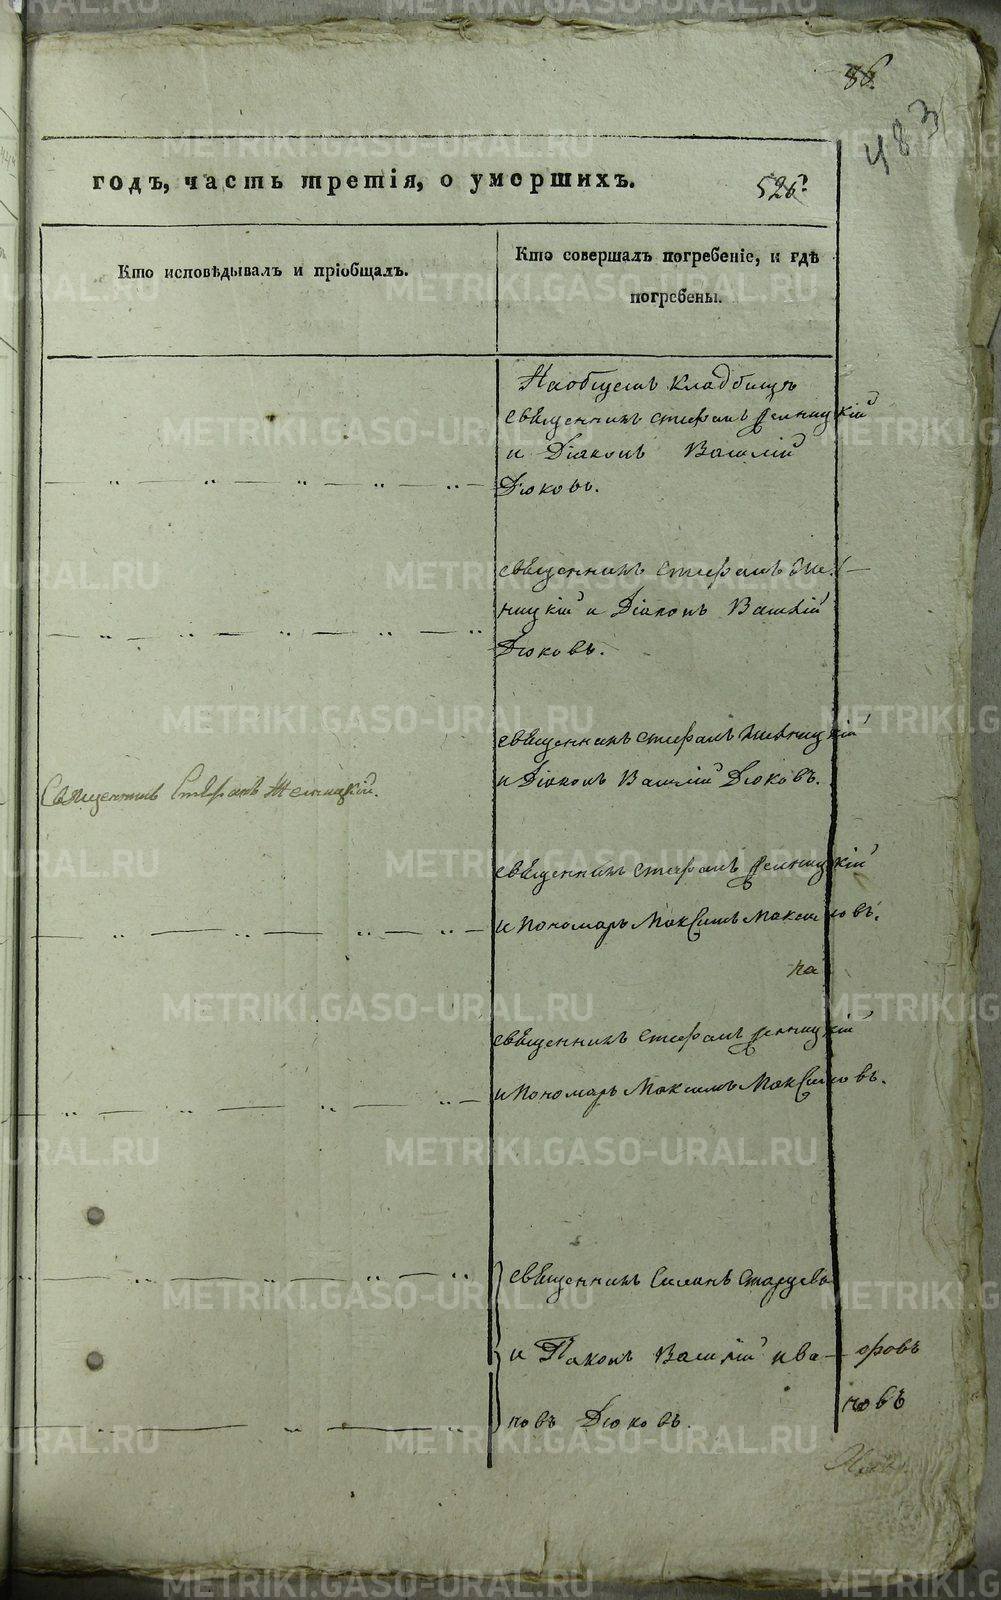 86.
483
годъ, часть третія, о умершихъ.
526.
Кто исповѣдывалъ и пріобщалъ.
Кто совершалъ погребеніе, и гдѣ
погребены.
Наобщемъ кладбищѣ
священникъ стефанъ
и Діаконъ Василій
Дюковъ.
священникъ стефанъ
ницкій и Діаконъ Василій
Дюковъ.
священникъ стефанъ
и Діаконъ Василій Дюковъ.
Священникъ Стефанъ
священникъ стефанъ
и Пономарь Максимъ Максимовъ.
на
священникъ стефанъ
и Пономарь Максимъ Максимовъ.
священникъ Старцевъ
и Діаконъ Василій ива—
новъ Дюковъ.
оровъ
новъ
METRIKI.GASO-URAL.RU